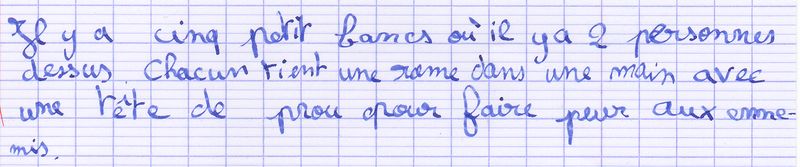 Il y a cinq petit bancs où il y a 2 personnes
dessus. Chacun tient une rame dans une main avec
une tête de prou pour faire peur aux enne-
mis.